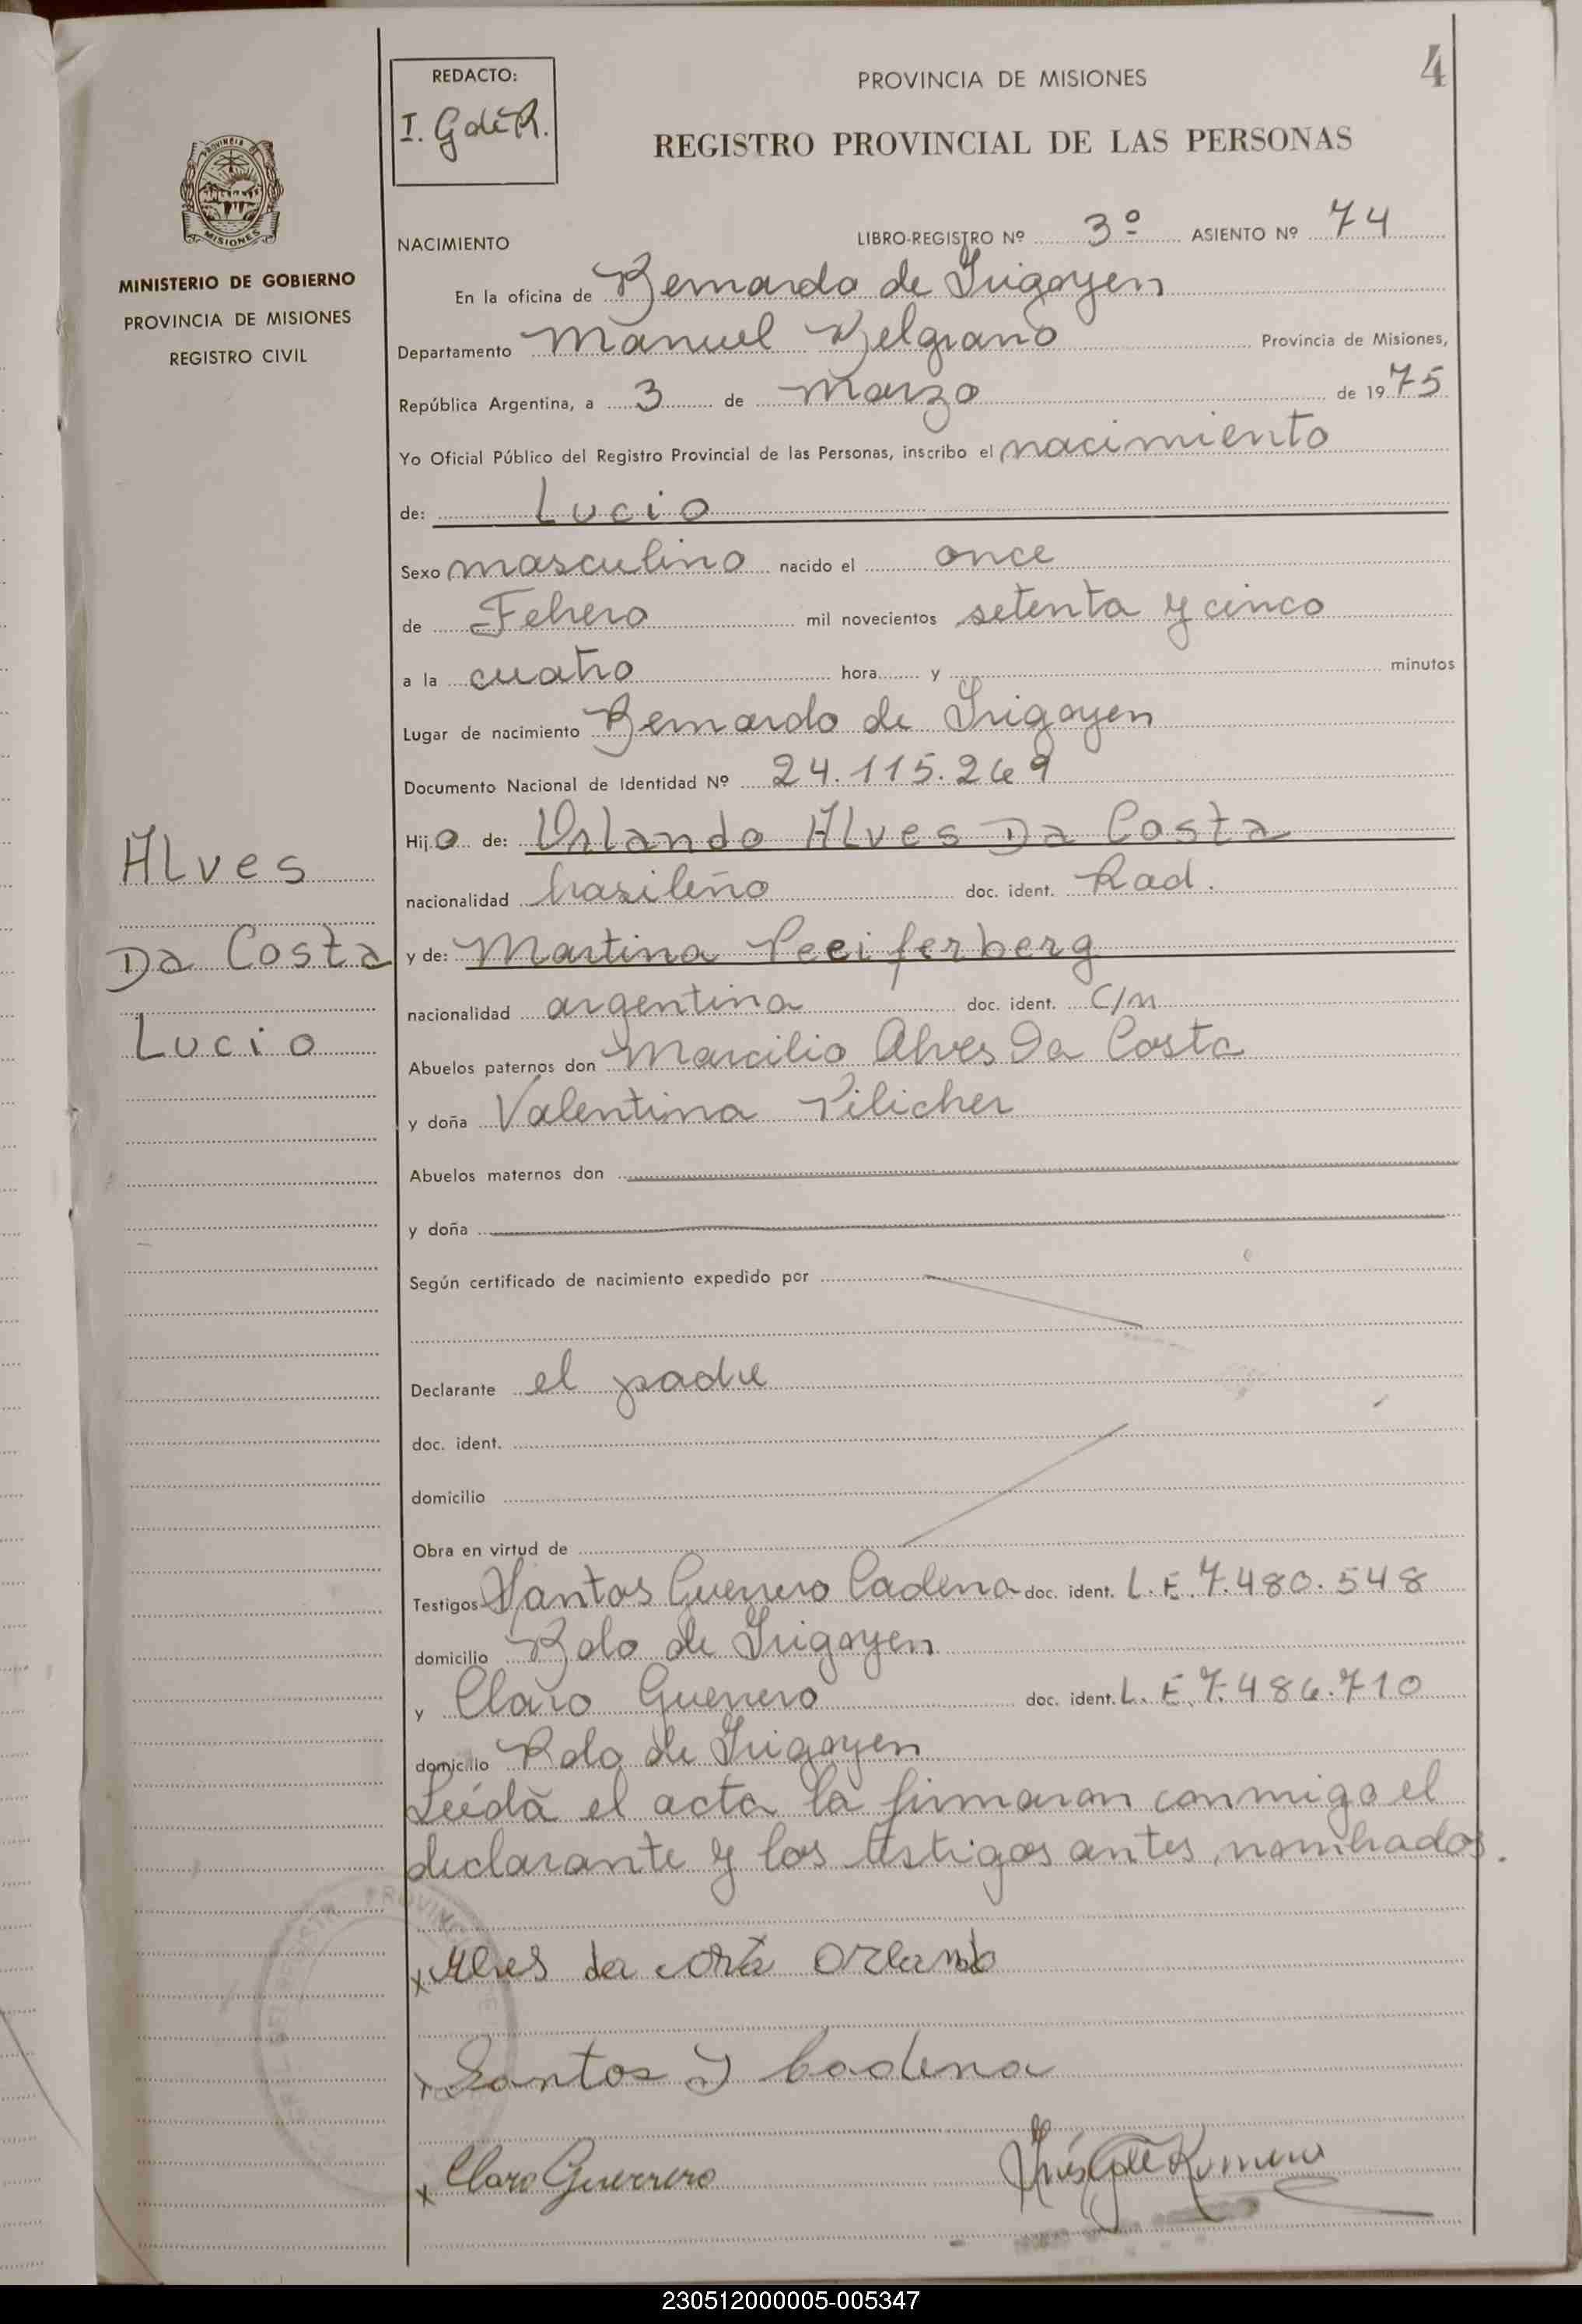 4
REDACTO:
I. G de R.
PROVINCIA DE MISIONES
REGISTRO PROVINCIAL DE LAS PERSONAS
PROVINCIA DE
MISIONES
MINISTERIO DE GOBIERNO
PROVINCIA DE MISIONES
REGISTRO CIVIL
NACIMIENTO LIBRO-REGISTRO Nº 3º ASIENTO Nº 74
En la oficina de Bernardo de Irigoyen
Departamento Manuel Belgrano Provincia de Misiones,
República Argentina, a 3 de Marzo de 1975
Yo Oficial Público del Registro Provincial de las Personas, inscribo el nacimiento
de: Lucio
Sexo masculino nacido el once
de Febrero mil novecientos setenta y cinco
a la cuatro hora y minutos
Lugar de nacimiento Bernardo de Irigoyen
Documento Nacional de Identidad Nº 24.115.269
Hijo de: Orlando Alves Da Costa
nacionalidad brasileño doc. ident. Rad.
y de: Martina Peeiferberg
nacionalidad argentina doc. ident. C/n
Abuelos paternos don Marcilio Alves Da Costa
y doña Valentina Pilicher
Abuelos maternos don
y doña
Según certificado de nacimiento expedido por
Declarante el padre
doc. ident.
domicilio
Obra en virtud de
Testigos Santos Guerrero Cadena doc. ident. L.E. 7.480.548
domicilio Bdo de Irigoyen
y Claro Guerrero doc. ident. L.E. 7.486.710
domicilio Bdo de Irigoyen
Leída el acta la firmaron conmigo el
declarante y los testigos antes nombrados.
Alves
Da Costa
Lucio
x Alves da costa Orlando
x Santos Cadena
x Claro Guerrero
230512000005-005347